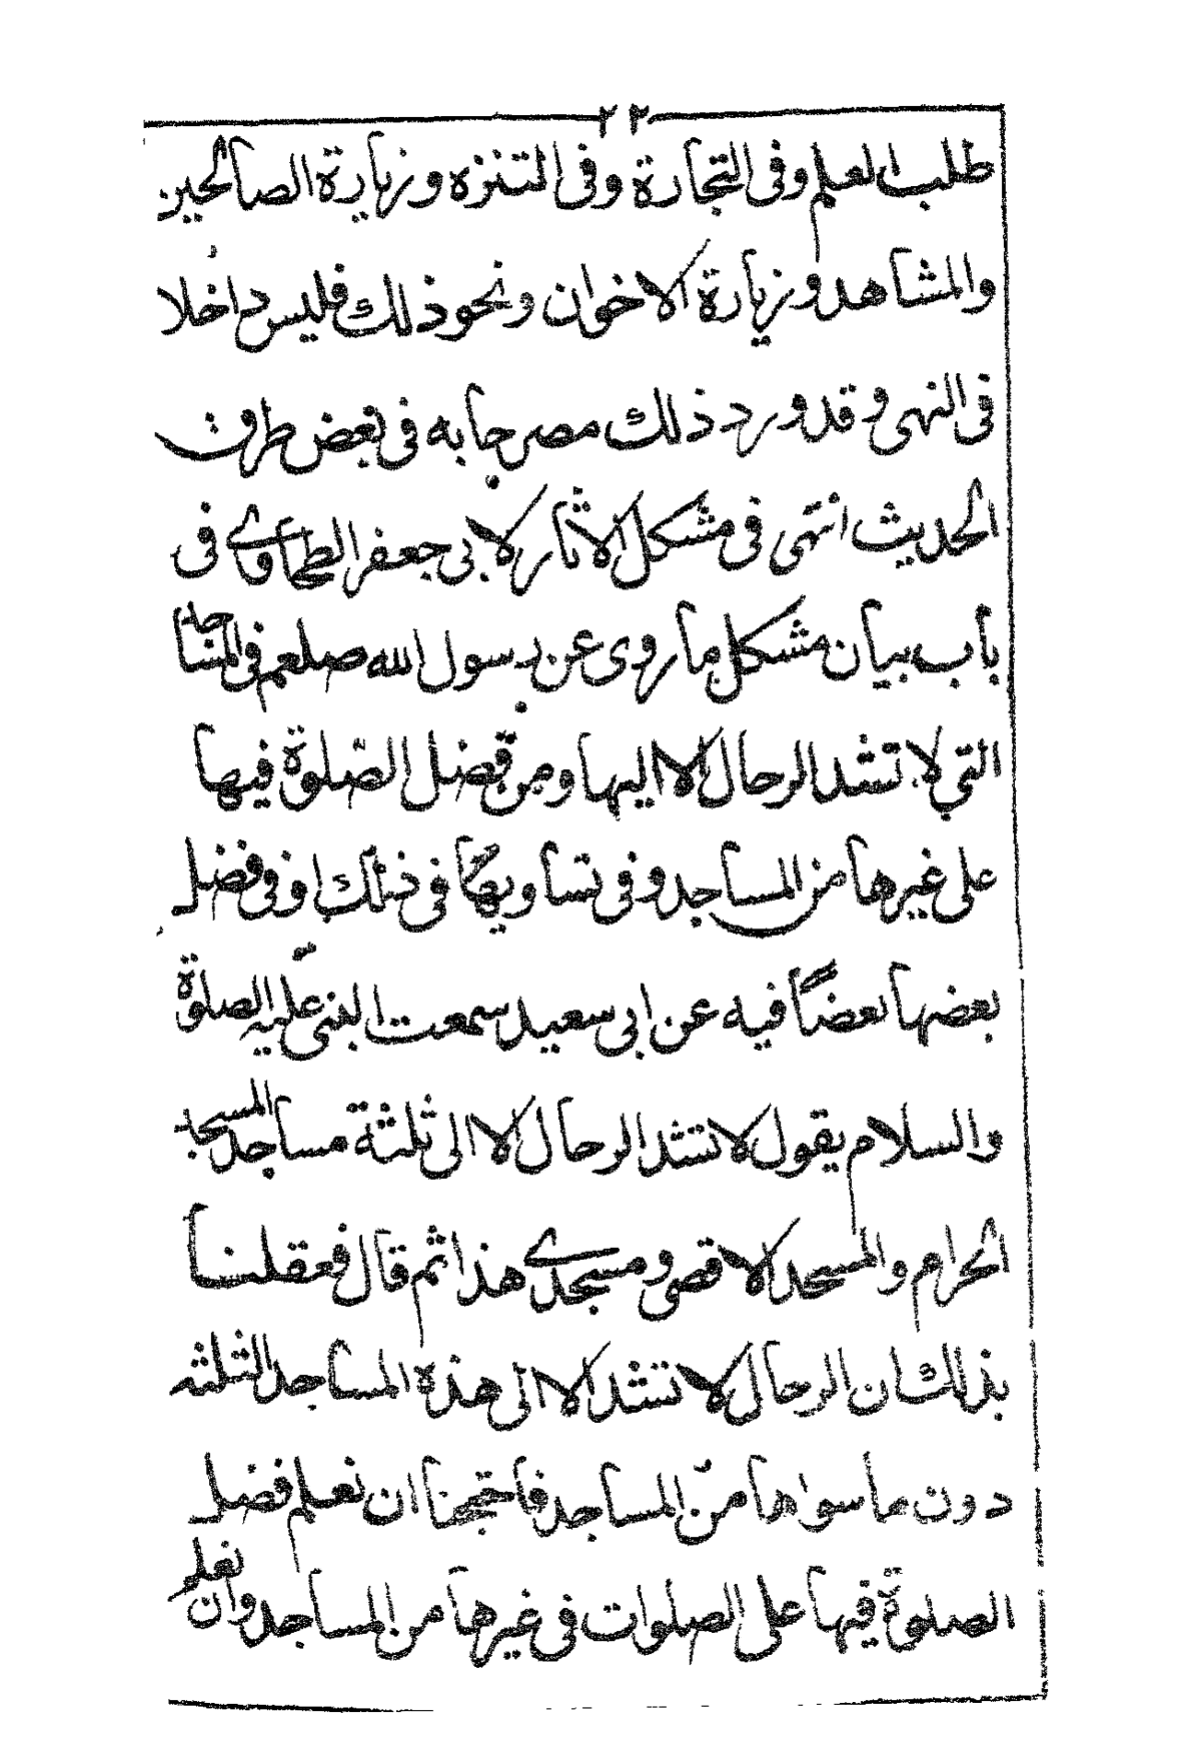 ٢٢
طلب العلم وفى التجارة وفى التنزه وزيارة الصالحين
والمشاهد وزيارة الاخوان ونحو ذلك فليس داخلا
فى النهى وقد ورد ذلك مصرحا به فى بعض طرق
الحديث انتهى فى مشكل الاثار لابى جعفر الطحاوى فى
باب بيان مشكل ما روى عن رسول الله صلعم فى المساجد
التي لا تشد الرحال الا اليها ومن فضل الصلوة فيها
على غيرها من المساجد وفى تساويها فى ذلك او فى فضل
بعضها بعضًا فيه عن ابى سعيد سمعت النبى عليه الصلوة
والسلام يقول لا تشد الرحال الا الى ثلثة مساجد المسجد
الحرام والمسجد الاقصى ومسجدى هذا ثم قال فعقلنا
بذلك ان الرحال لا تشد الا الى هذه المساجد الثلثه
دون ما سواها من المساجد فاحتجنا ان نعلم فضل
الصلوة فيها على الصلوات فى غيرها من المساجد وان نعلم